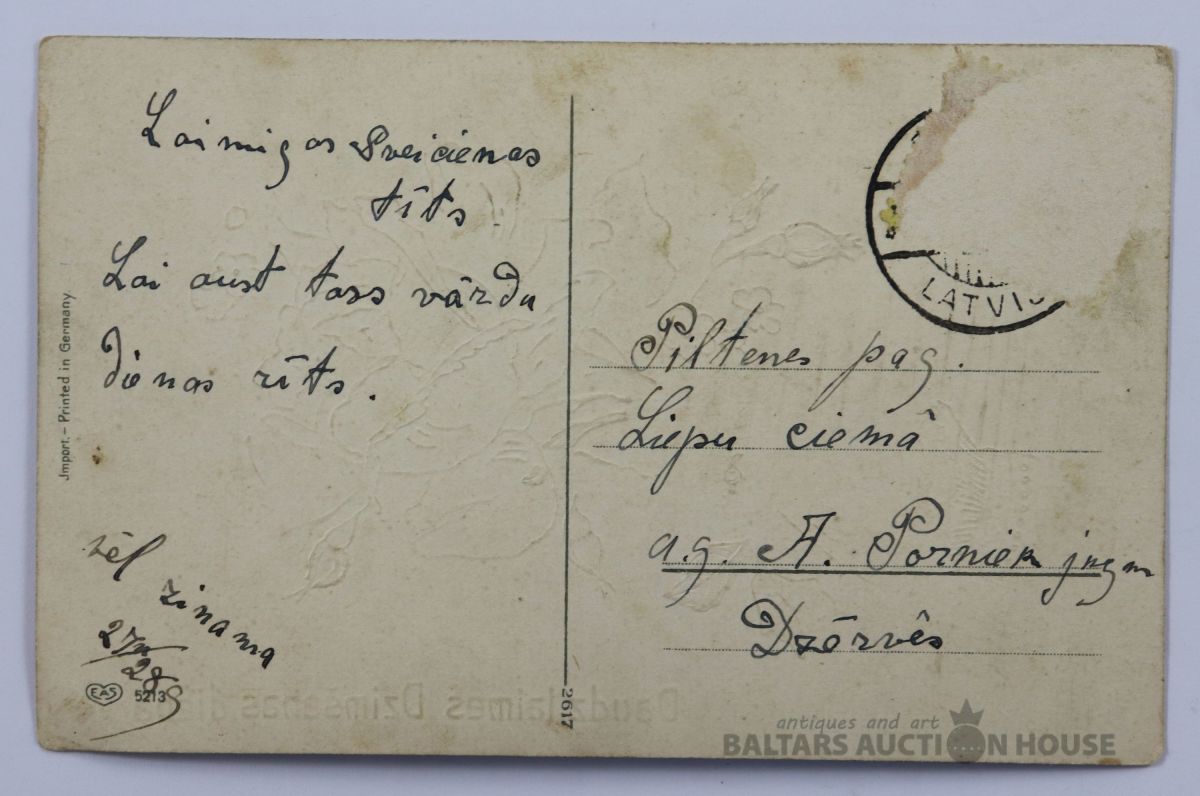 Laimigas Sveicienas
tīts.
Lai aust tass vārdu
dienas rīts.
vēl
zinama
27/
28g
Jmport.- Printed in Germany.
EAS 5213
2617
LATVIJ
Piltenes pag.
Liepu ciemā
ag. A. Porniek
Dzērvēs
Daudz laimes Dzimšanas
antiques and art
BALTARS AUCTION HOUSE